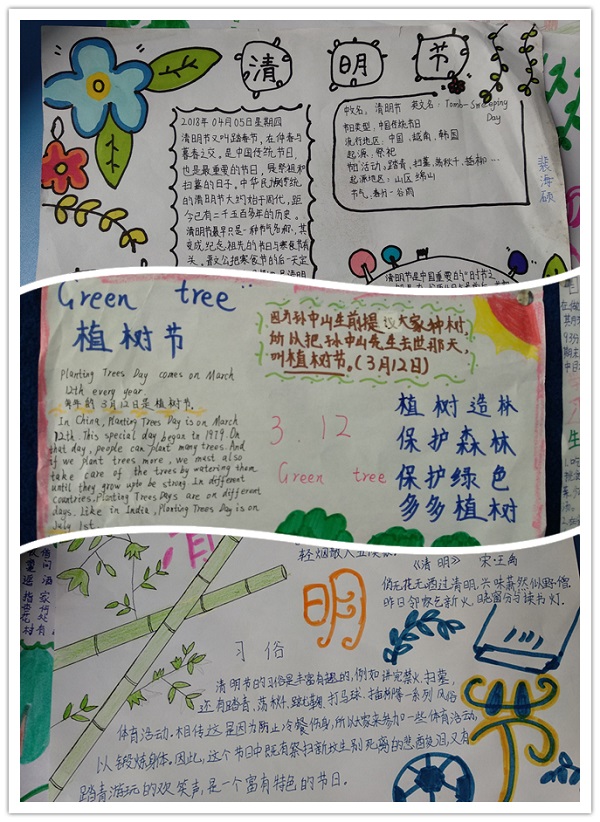 清 明 节
2018年04月05日是期四
清明节又叫踏春节,在仲春与
暮春之交。是中国传统节日,
也是最重要的节日,是祭祖和
扫墓的日子。中华民族传统
的清明节大约始于周代,距
今已有二千五百多年的历史。
清明节最早只是一种节气名称,其
变成纪念祖先的节日与寒食节有
关。晋文公把寒食节的后一天定
中文名:清明节 英文名:Tomb-Sweeping
Day
节日类型:中国传统节日
流行地区:中国、越南、韩国
起源:祭祀
节日活动:踏青、扫墓、荡秋千、插柳……
起源地区:山区绵山
节气:春分-谷雨
裴海硕
清明节是中国重要的"时节之
Green tree
植树节
Planting Trees Day comes on March
12th every year.
每年的3月12日是植树节。
In China, Planting Trees Day is on March
12th. This special day began in 1979. On
that day, people can plant many trees. And
if we plant trees more, we must also
take care of the trees by watering them
until they grow upto be strong. In different
countries, Planting Trees Days are on different
days. Like in India, Planting Trees Day is on
July 1st.
因为孙中山生前提议大家种树
所以把孙中山先生去世那天,
叫植树节。(3月12日)
3.12
Green tree
植树造林
保护森林
保护绿色
多多植树
清
明
节
《清明》 宋·王禹
昨日邻家乞新火,晓窗分与读书灯。
习俗
清明节的习俗是丰富有趣的,例如讲究禁火、扫墓,
还有踏青、荡秋千、蹴鞠、打马球、插柳等一系列风俗
体育活动。相传这是因为防止冷餐伤身,所以大家来参加一些体育活动,
以锻炼身体。因此,这个节日中既有祭扫新坟生别死离的悲酸泪,又有
踏青游玩的欢笑声,是一个富有特色的节日。